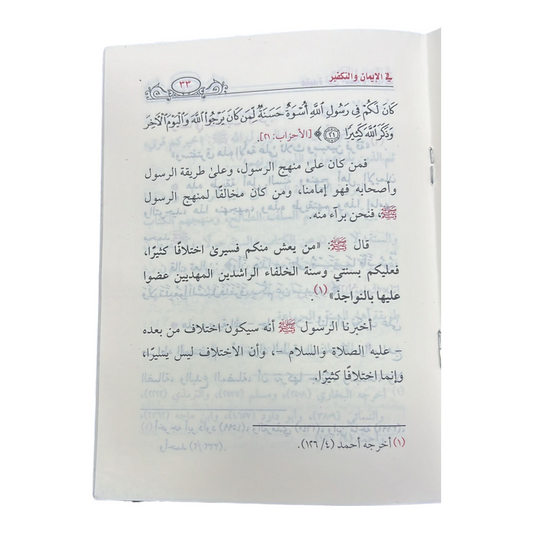 في الإيمان والتكفير
٣٣
كَانَ لَكُمْ فِي رَسُولِ اللَّهِ أُسْوَةٌ حَسَنَةٌ لِّمَن كَانَ يَرْجُوا اللَّهَ وَالْيَوْمَ الْآخِرَ
وَذَكَرَ اللَّهَ كَثِيرًا ﴿٢١﴾﴾ [الأحزاب: ٢١].
فمن كان على منهج الرسول، وعلى طريقة الرسول
وأصحابه فهو إمامنا، ومن كان مخالفًا لمنهج الرسول
ﷺ، فنحن برآء منه.
قال ﷺ: «من يعش منكم فسيرى اختلافًا كثيرًا،
فعليكم بسنتي وسنة الخلفاء الراشدين المهديين عضوا
عليها بالنواجذ»(١).
أخبرنا الرسول ﷺ أنه سيكون اختلاف من بعده
– عليه الصلاة والسلام –، وأن الاختلاف ليس يسيرًا،
وإنما اختلافًا كثيرًا.
(١) أخرجه أحمد (٤/ ١٢٦).